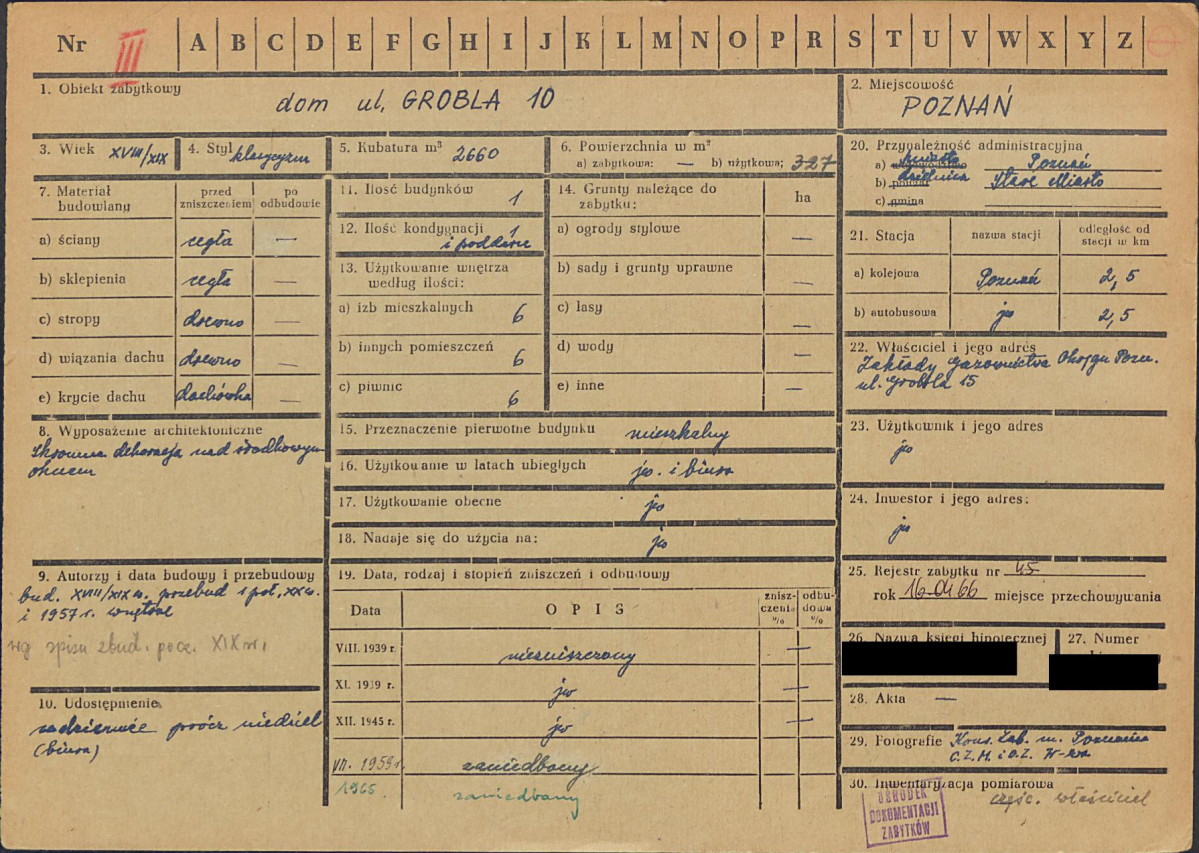 Nr III A B C D E F G H I J K L M N O P R S T U V W X Y Z
1. Obiekt zabytkowy dom ul. GROBLA 10
2. Miejscowość POZNAŃ
3. Wiek XVIII/XIX
4. Styl klasycyzm
5. Kubatura m³ 2660
6. Powierzchnia w m²
a) zabytkowa: — b) użytkowa: 327
20. Przynależność administracyjna
a) miasto Poznań
b) powiat dzielnica Stare Miasto
c) gmina
7. Materiał budowlany
przed zniszczeniem
po odbudowie
a) ściany cegła —
b) sklepienia cegła —
c) stropy drewno —
d) wiązania dachu drewno —
e) krycie dachu dachówka —
8. Wyposażenie architektoniczne
skromna dekoracja nad środkowym
oknem
9. Autorzy i data budowy i przebudowy
bud. XVIII/XIX w. przebud 1 poł. XX w.
i 1957 r. wnętrze
wg spisu zbud. pocz. XIX w.
10. Udostępnienie
codziennie prócz niedziel
(biura)
11. Ilość budynków 1
12. Ilość kondygnacji 1
i poddasze
13. Użytkowanie wnętrza
według ilości:
a) izb mieszkalnych 6
b) innych pomieszczeń 6
c) piwnic 6
14. Grunty należące do
zabytku:
ha
a) ogrody stylowe —
b) sady i grunty uprawne —
c) lasy —
d) wody —
e) inne —
15. Przeznaczenie pierwotne budynku mieszkalny
16. Użytkowanie w latach ubiegłych jw. i biura
17. Użytkowanie obecne jw
18. Nadaje się do użycia na: jw
19. Data, rodzaj i stopień zniszczeń i odbudowy
Data OPIS znisz-czenia % odbu-dowa %
VIII. 1939 r. niezniszczony —
XI. 1939 r. jw —
XII. 1945 r. jw —
VII. 1959 r. zaniedbany
1965 zaniedbany
21. Stacja nazwa stacji odległość od stacji w km
a) kolejowa Poznań 2,5
b) autobusowa jw 2,5
22. Właściciel i jego adres
Zakłady Gazownictwa Okręgu Pozn.
ul. Grobla 15
23. Użytkownik i jego adres
jw
24. Inwestor i jego adres:
jw
25. Rejestr zabytku nr 45
rok 16 04 66 miejsce przechowywania
26. Nazwa księgi hipotecznej
27. Numer
28. Akta —
29. Fotografie Kons. Zab. m. Poznania
C.Z.M. i O.Z. W-wa
30. Inwentaryzacja pomiarowa
częśc. właściciel
OŚRODEK
DOKUMENTACJI
ZABYTKÓW